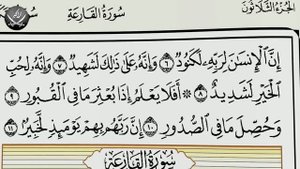 سُورَةُ القَارِعَةِ
الجُزْءُ الثَّلَاثُونَ
إِنَّ ٱلْإِنسَٰنَ لِرَبِّهِۦ لَكَنُودٌ ٦ وَإِنَّهُۥ عَلَىٰ ذَٰلِكَ لَشَهِيدٌ ٧ وَإِنَّهُۥ لِحُبِّ
ٱلْخَيْرِ لَشَدِيدٌ ٨ ۞ أَفَلَا يَعْلَمُ إِذَا بُعْثِرَ مَا فِى ٱلْقُبُورِ ٩
وَحُصِّلَ مَا فِى ٱلصُّدُورِ ١٠ إِنَّ رَبَّهُم بِهِمْ يَوْمَئِذٍ لَّخَبِيرٌۢ ١١
سُورَةُ القَارِعَةِ